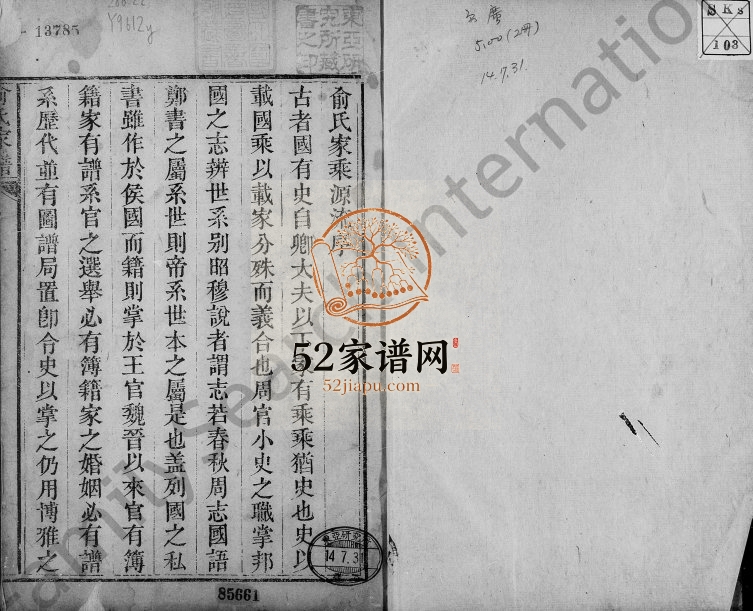 俞氏家乘源流序
古者國有史自卿大夫以下家有乘乘猶史也史以
載國乘以載家分殊而義合也周官小史之職掌邦
國之志辨世系别昭穆說者謂志若春秋周志國語
鄭書之屬系世則帝系世本之屬是也盖列國之私
書雖作於侯國而籍則掌於王官魏晉以來官有簿
籍家有譜系官之選舉必有簿籍家之婚姻必有譜
系歷代並有圖譜局置卽令史以掌之仍用博雅之
俞氏家譜
13785
Y9612y
東亞研
究所藏
書之印
5.00(2冊)
14.7.31.
SKs
103
52家谱网
52jiapu.com
14.7.31
85661
FamilySearch International